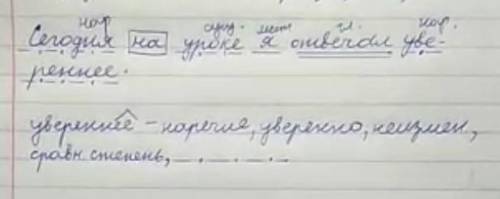 нар. сущ. мест. гл. нар.
Сегодня на уроке я отвечал уве-
реннее.
увереннее – наречие, уверенно, неизмен,
сравн. степень,